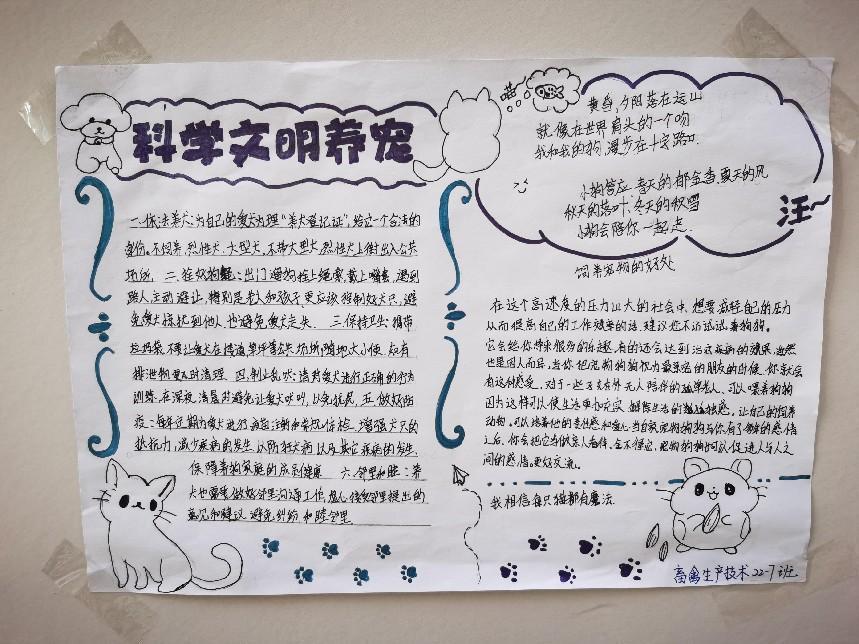 科学文明养宠
一、依法养犬:为自己的爱犬办理“养犬登记证”,给它一个合法的
身份。不饲养烈性犬、大型犬,不带大型犬、烈性犬上街出入公共
场所。二、拴好狗绳:出门遛狗拴上绳索,戴上嘴套,遇到
路人主动避让,特别是老人和孩子更应该控制好犬只,避
免爱犬惊扰到他人,也避免爱犬走失。三、保持卫生:携带
垃圾袋,不要让爱犬在楼道、草坪等公共场所随地大小便,如有
排泄物要及时清理。四、制止乱吠:请对爱犬进行正确的行为
训练,在深夜、清晨时避免让爱犬吠叫,以免扰民。五、做好防
疫:每年定期为爱犬进行疫苗注射和常规体检,增强犬只的
抵抗力,减少疾病的发生,以防狂犬病以及其它疾病的发生,
保障养狗家庭的成员健康。六、邻里和睦:养
犬也需要做好邻里沟通工作,虚心接受邻里提出的
意见和建议,避免纠纷,和睦邻里。
喵
黄昏,夕阳落在远山
就像在世界肩头的一个吻
我和我的狗,漫步在十字路口
小狗答应,春天的郁金香,夏天的风
秋天的落叶,冬天的秋雪
小狗会陪你一起走
汪~
饲养宠物的好处
在这个高速度的压力山大的社会中,想要减轻自己的压力
从而提高自己的工作效率的话,建议您不妨试试养狗狗。
它会给你带来很多的乐趣,有的还会达到治疗疾病的效果,当然
也是因人而异,当你把宠物狗狗视为最亲密的朋友的时候,你就会
有这种感受。对于一些子女在外无人陪伴的孤单老人,可以喂养狗狗
因为这样可以使生活更加充实,
让自己的饲养
动物,可以培养他的责任感和爱心,
之后,你会把它当做亲人看待。
间的感情,更好交流。
我相信每只猫都有魔法
畜禽生产技术22-7班